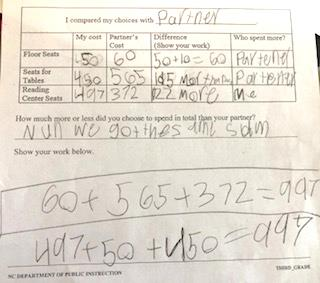 I compared my choices with Partner
My cost Partner's Cost Difference (Show your work) Who spent more?
Floor Seats 50 60 50+10=60 Partener
Seats for Tables 450 565 Partener
Reading Center Seats 497 372 more Me
How much more or less did you choose to spend in total than your partner?
Nun We got
Show your work below.
60+565+372=997
497+50+450=997
NC DEPARTMENT OF PUBLIC INSTRUCTION THIRD GRADE